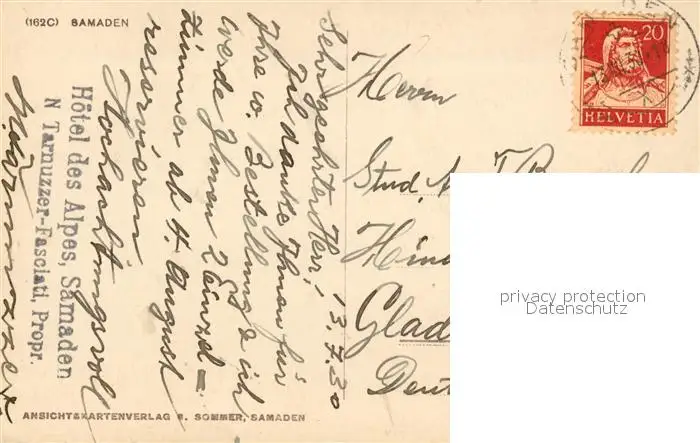 (162C) SAMADEN
13.7.30
Sehr geehrter Herr!
Ich danke Ihnen für
Ihre w. Bestellung & ich
werde Ihnen 2 Einzel-
zimmer ab 4. August
reservieren
Hochachtungsvoll
Hôtel des Alpes, Samaden
N Tarnuzzer-Fasciati, Propr.
ANSICHTSKARTENVERLAG SOMMER, SAMADEN
20
HELVETIA
Herrn
Stud.
Glad
privacy protection
Datenschutz